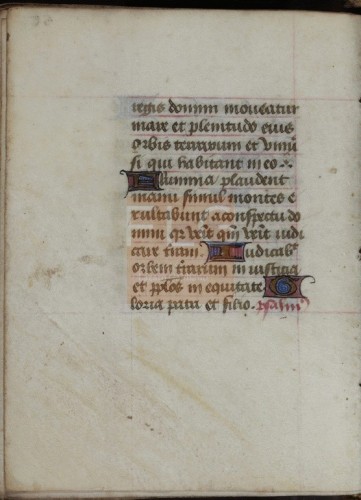 regis domini moveatur
mare et plenitudo eius
orbis terrarum et univer
si qui habitant in eo.
Flumina plaudent
manu simul montes e
xultabunt a conspectu do
mini qr venit qm venit iudi
care terram. Iudicabit
orbem terrarum in iusticia
et pplos in equitate. G
loria patri et filio. psalm